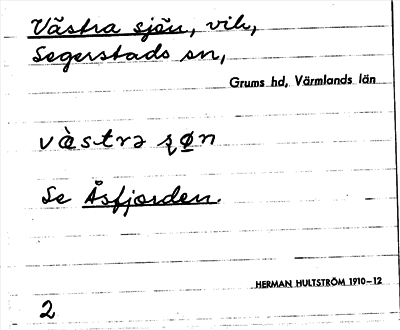 Västra sjön, vik,
Segerstads sn,
Grums hd, Värmlands län
Se Åsfjorden.
HERMAN HULTSTRÖM 1910–12
2